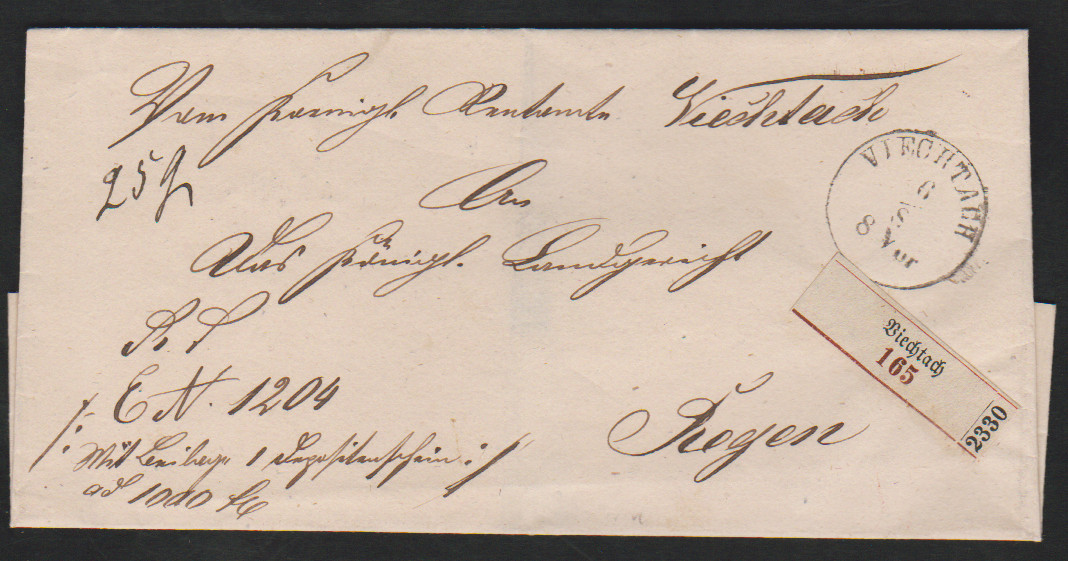 Vom Koenigl. Rentamte Viechtach
25
An
Das Königl. Landgericht
R. S
E N. 1204
/: Mit Beilage 1 Depositenschein :/
ad 1000 fl
Regen
VIECHTACH
6
NOV
8 Vor
Viechtach
165
2330